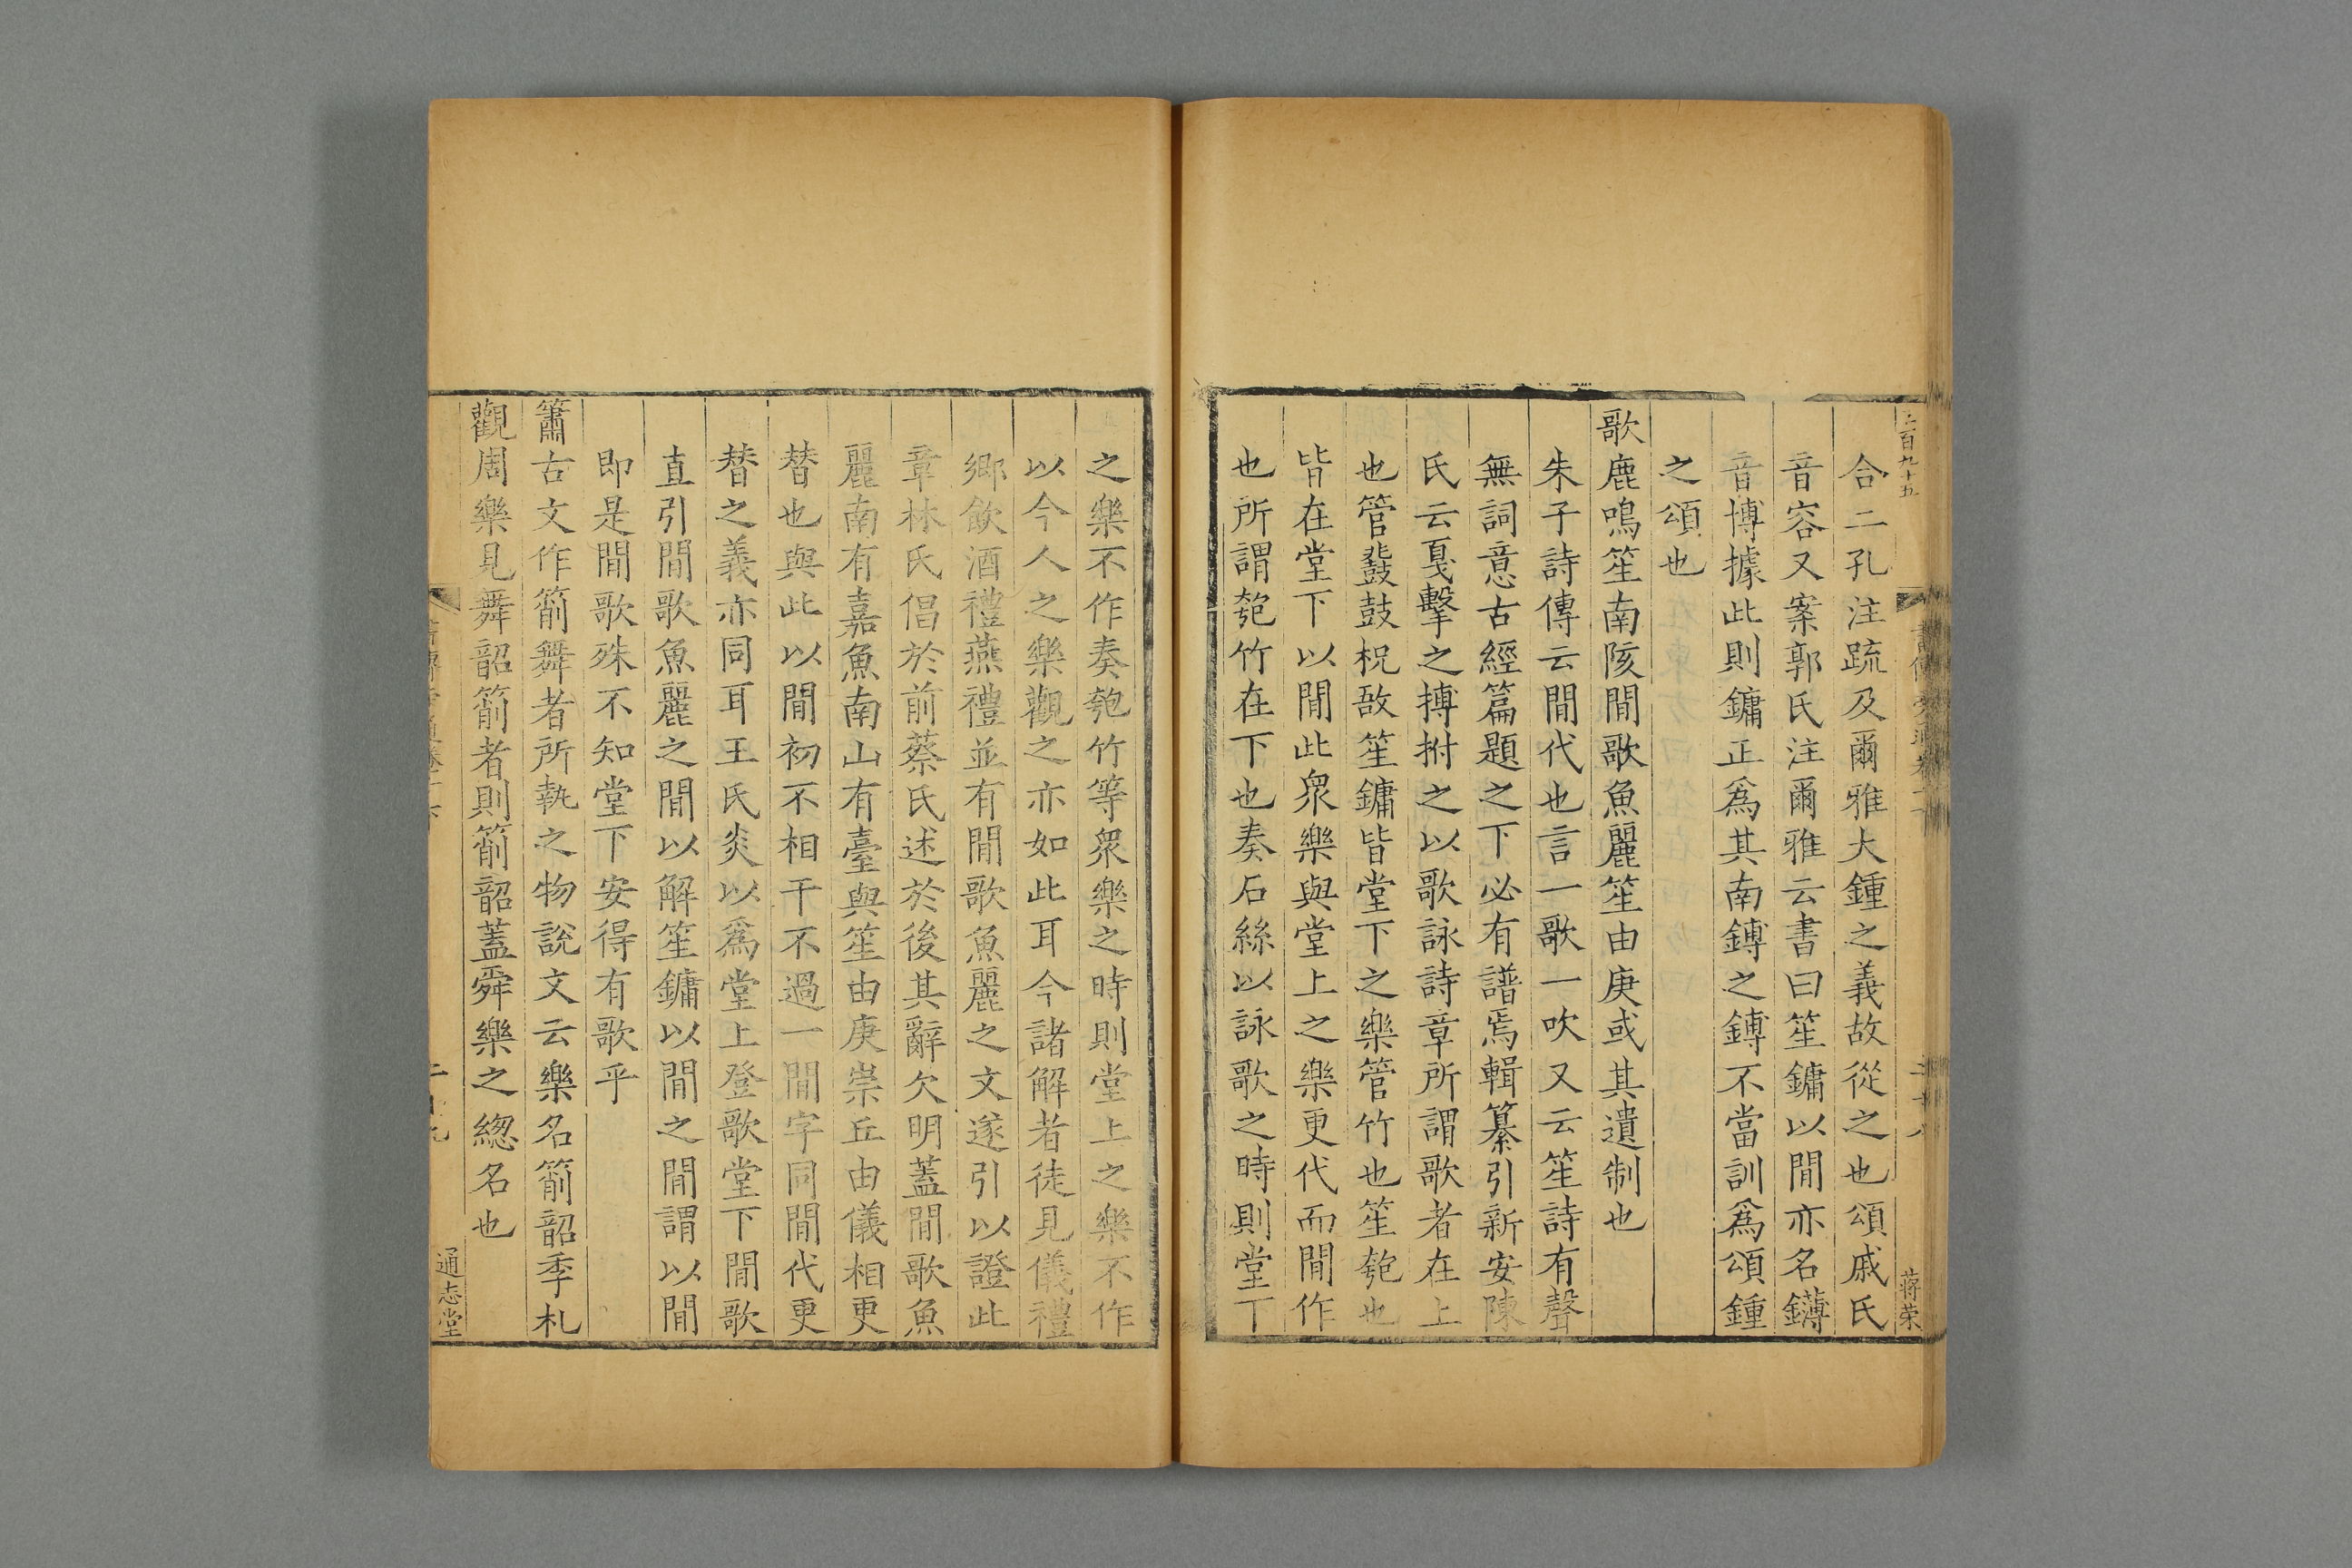 合二孔注疏及爾雅大鍾之義故從之也頌戚氏
音容又案郭氏注爾雅云書曰笙鏞以閒亦名鑮
音博據此則鏞正爲其南鑮之鑮不當訓爲頌鍾
之頌也
歌鹿鳴笙南陔閒歌魚麗笙由庚或其遺制也
朱子詩傳云閒代也言一歌一吹又云笙詩有聲
無詞意古經篇題之下必有譜焉輯纂引新安陳
氏云戛擊之搏拊之以歌詠詩章所謂歌者在上
也管鼗鼓柷敔笙鏞皆堂下之樂管竹也笙匏也
皆在堂下以閒此衆樂與堂上之樂更代而閒作
也所謂匏竹在下也奏石絲以詠歌之時則堂下
之樂不作奏匏竹等衆樂之時則堂上之樂不作
以今人之樂觀之亦如此耳今諸解者徒見儀禮
鄉飲酒禮燕禮並有閒歌魚麗之文遂引以證此
章林氏倡於前蔡氏述於後其辭欠明蓋閒歌魚
麗南有嘉魚南山有臺與笙由庚崇丘由儀相更
替也與此以閒初不相干不過一閒字同閒代更
替之義亦同耳王氏炎以爲堂上登歌堂下閒歌
直引閒歌魚麗之閒以解笙鏞以閒之閒謂以閒
即是閒歌殊不知堂下安得有歌乎
簫古文作箾舞者所執之物說文云樂名箾韶季札
觀周樂見舞韶箾者則箾韶蓋舜樂之緫名也
通志堂
蔣荣